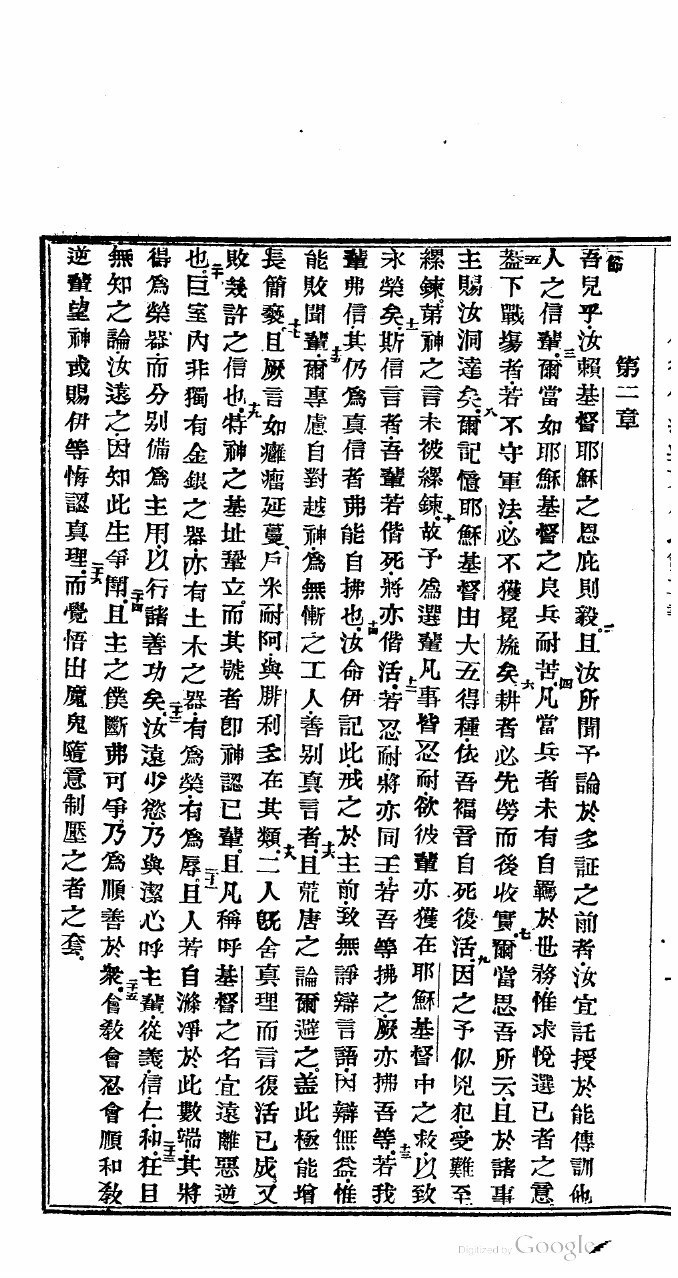 第二章
吾兒乎汝賴基督耶穌之恩庇則毅且汝所聞予論於多証之前者汝宜託授於能傳訓他
人之信輩爾當如耶穌基督之良兵耐苦凡當兵者未有自羈於世務惟求悅選已者之意
蓋下戰塲者若不守軍法必不獲冕旒矣耕者必先勞而後收實爾當思吾所云且於諸事
主賜汝洞達矣爾記憶耶穌基督由大五得種依吾福音自死復活因之予似兇犯受難至
縲鍊第神之言未被縲鍊故予為選輩凡事皆忍耐欲彼輩亦獲在耶穌基督中之救以致
永榮矣斯信言者吾輩若偕死將亦偕活若忍耐將亦同王若吾等拂之厥亦拂吾等若我
輩弗信其仍為真信者弗能自拂也汝命伊記此戒之於主前致無諍辯言語因辯無益惟
能敗聞輩爾專慮自對越神為無慚之工人善別真言者且荒唐之論爾避之蓋此極能增
長簡褻且厥言如癰瘤延蔓戶米耐阿與腓利多在其類二人既舍真理而言復活已成又
敗幾許之信也特神之基址鞏立而其號者卽神認已輩且凡稱呼基督之名宜遠離惡逆
也巨室內非獨有金銀之器亦有土木之器有為榮有為辱且人若自滌凈於此數端其將
得為榮器而分別備為主用以行諸善功矣汝遠少慾乃與潔心呼主輩從義信仁和狂且
無知之論汝遠之因知此生爭鬧且主之僕斷弗可爭乃為順善於衆會敎會忍會順和敎
逆輩望神或賜伊等悔認真理而覺悟出魔鬼隨意制壓之者之套
Digitized by Google